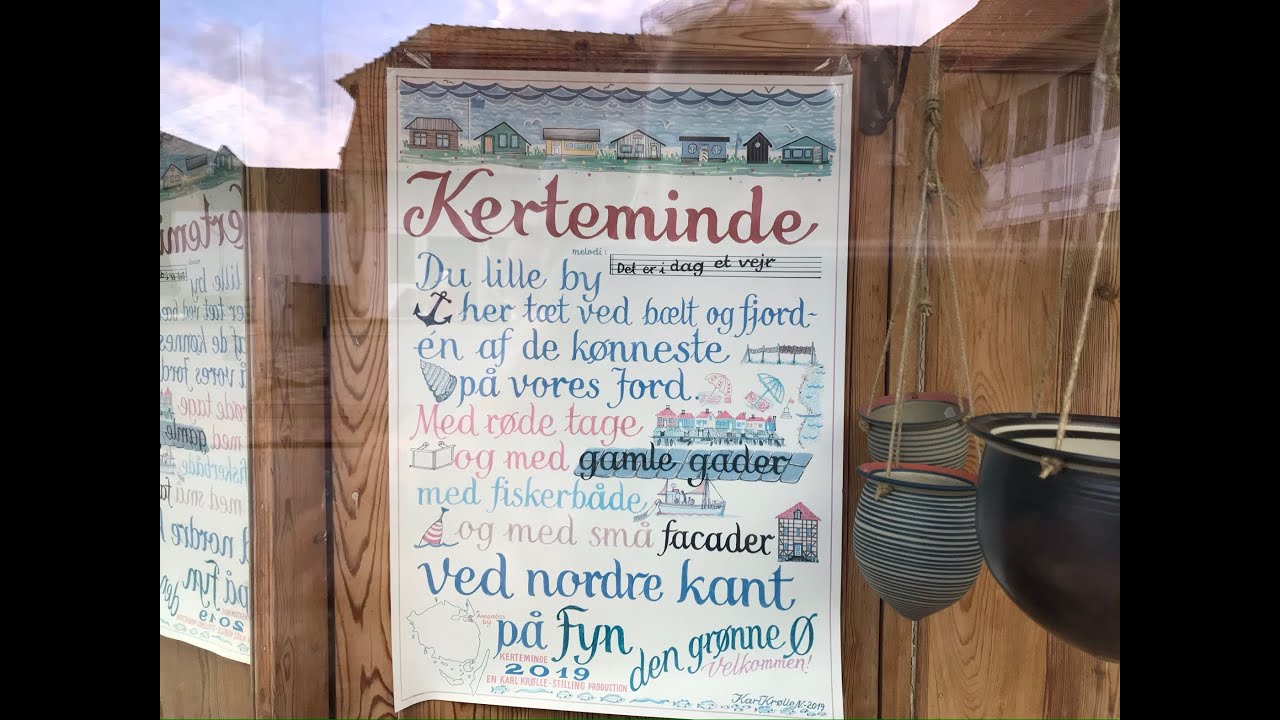 Kerteminde
melodi: Det er i dag et vejr
Du lille by
her tæt ved bælt og fjord-
én af de kønneste
på vores Jord.
Med røde tage
og med gamle gader
med fiskerbåde
og med små facader
ved nordre kant
på Fyn
den grønne Ø
Velkommen!
Amandas
by
KERTEMINDE
2019
EN KARL KRØLLE-STILLING PRODUCTION
Karl Krølle N-2019